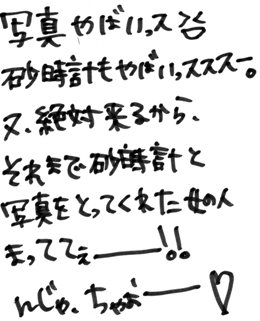 写真やばいっス
砂時計もやばいっススス〜。
又、絶対来るから、
それまで砂時計と
写真をとってくれた女の人
まっててぇ――!!
んじゃ、ちゃお――♡